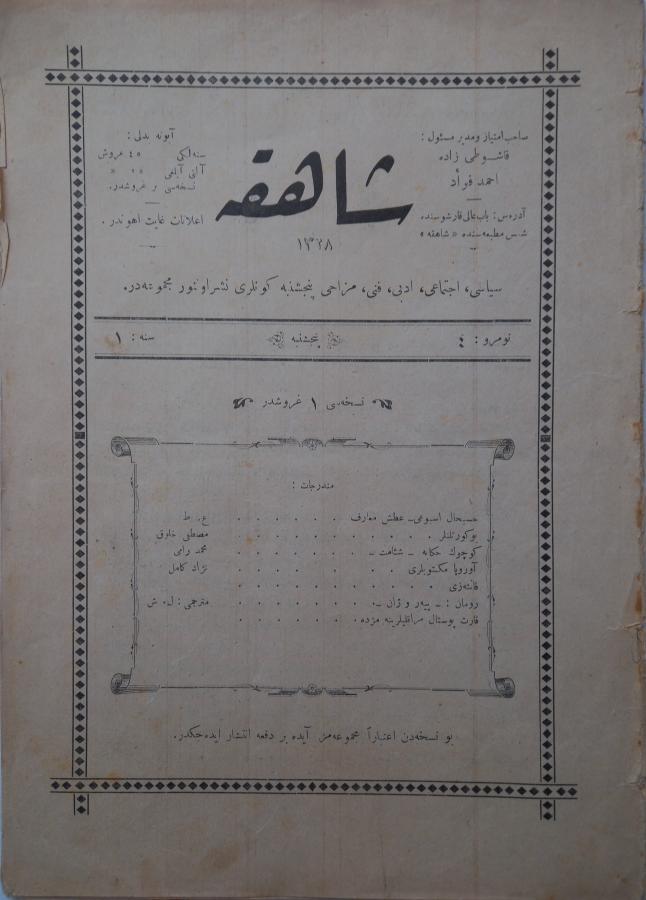 صاحب امتیاز ومدیر مسئول :
قاشوطی زاده
احمد فؤاد
آدرەس : باب عالی قارشوسندە
شمس مطبعەسندە « شاهقە »
شاهقه
١٣٢٨
آبونە بدلی :
سنەلكی ٤٥ غروش
آلتی آیلغی
نسخەسی بر غروشدر.
اعلانات غایت اهوندر .
سیاسی، اجتماعی، ادبی، فنی، مزاحی پنجشنبە كونلری نشر اولنور مجموعەدر.
نومرو : ٤
پنجشنبە
سنە : ١
نسخەسی ١ غروشدر
مندرجات :
حسبحال اسبوعی ـ عطش معارف . . . . . . ع . ط
بوكورتلنلر . . . . . . . . . . مصطفی خلوق
كوچوك حكایە ـ شئامت ـ . . . . . . . محمد رامی
آوروپا مكتوبلری . . . . . . نژاد كامل
فانتەزی . . . . . . . . . .
رومان : ـ پیەر و ژان ـ . . . . . . . . مترجمی : ل . ش
قارت پوستال مراقلیلرینە مژدە . . . . . . .
بو نسخەدن اعتباراً مجموعەمز آیدە بر دفعە انتشار ایدەجكدر.